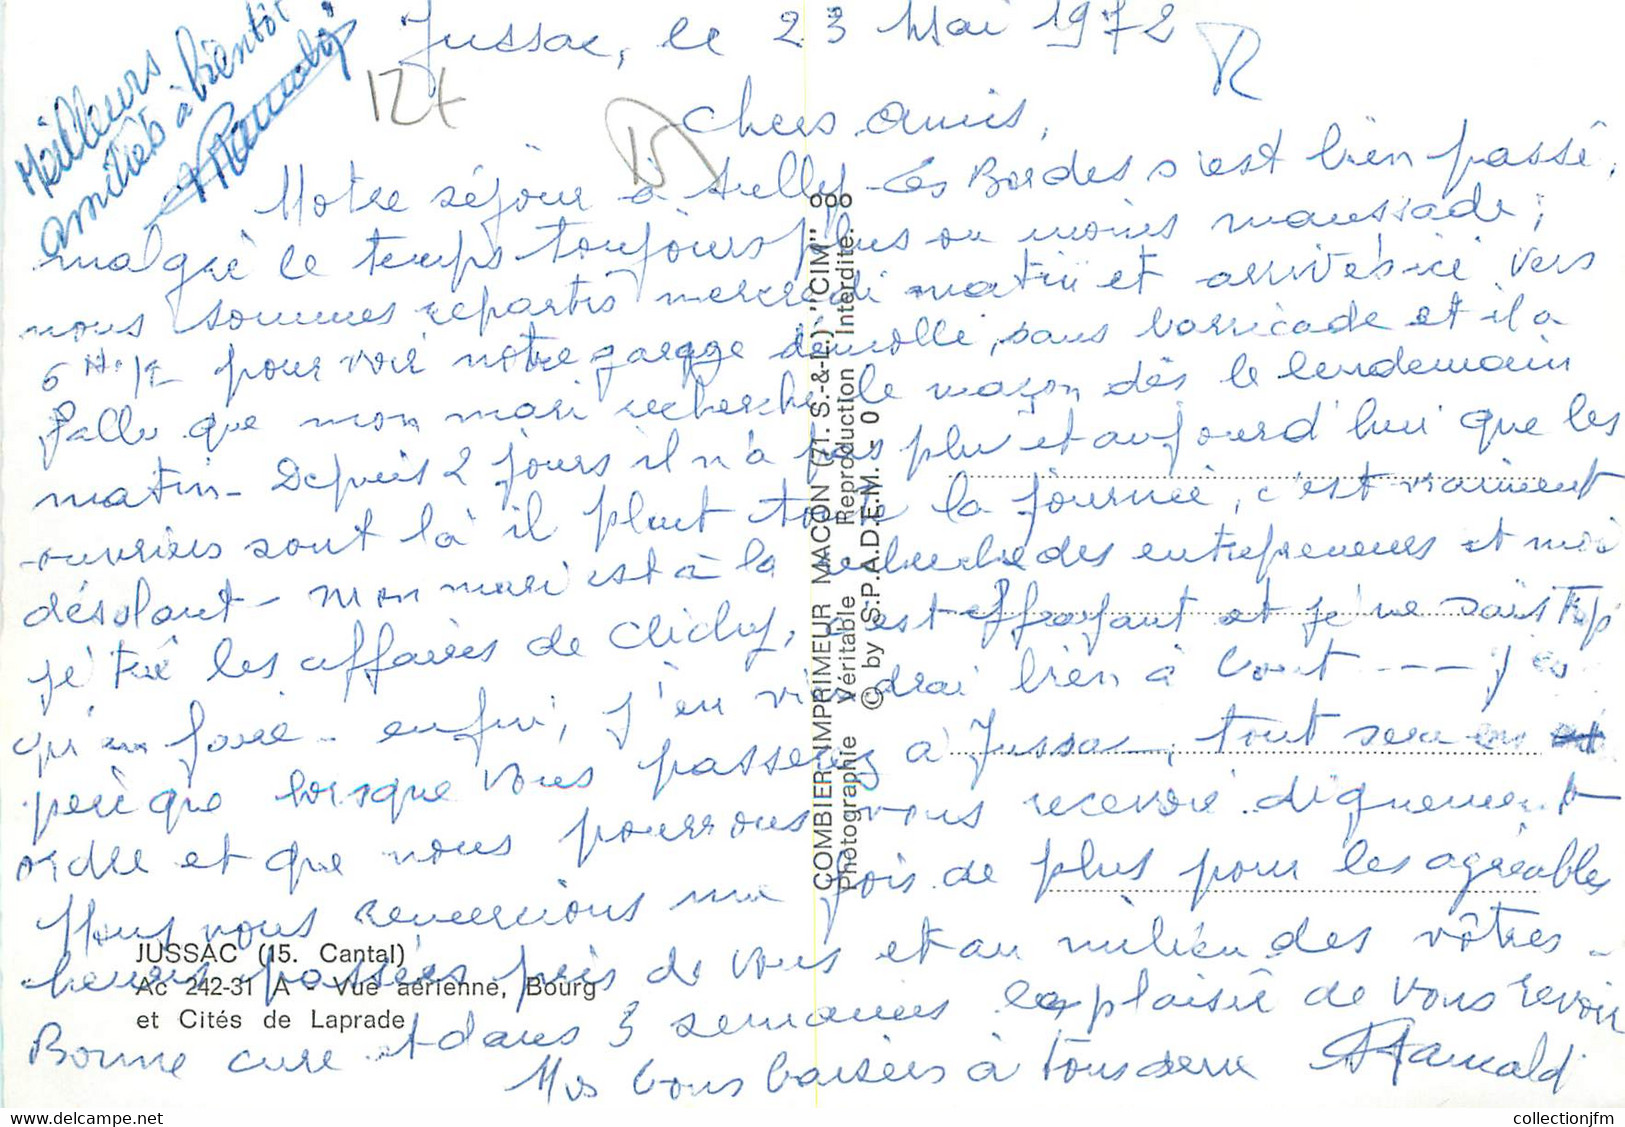 Jussac, le 23 Mai 1972
R
12t
15
Meilleurs
amitiés à bientôt
Chers amis,
Notre séjour à Les Bordes s'est bien passé,
malgré le temps toujours plus ou moins maussade ;
nous sommes repartis mercredi matin et arrivés ici vers
6 H.1/2 pour voir notre garage démolli, sans barricade et il a
fallu que mon mari recherche le maçon dès le lendemain
matin - Depuis 2 jours il n'a pas plu et aujourd'hui que les
ouvriers sont là il pleut toute la journée, c'est vraiment
désolant - mon mari est à la recherche des entrepreneurs et moi
je trie les affaires de Clichy, c'est effrayant et je ne sais trop
qu'en faire - enfin, j'en viendrai bien à bout --- J'es
père que lorsque vous passerez à Jussac, tout sera en
ordre et que nous pourrons vous recevoir dignement
Nous vous remercions une fois de plus pour les agréables
heures passées près de vous et au milieu des vôtres -
Bonne cure et dans 3 semaines le plaisir de vous revoir
Mes bons baisers à tous deux
JUSSAC (15. Cantal)
Ac 242-31 A - Vue aérienne, Bourg
et Cités de Laprade
COMBIER IMPRIMEUR MACON (71. S.-&-L.) "CIM"
Photographie Véritable Reproduction Interdite.
© by S.P.A.D.E.M.
collectionjfm